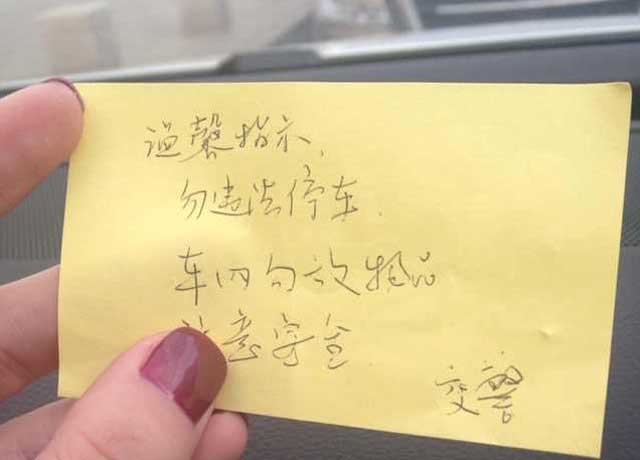 温馨指示,
勿违法停车.
车内勿放物品
注意安全
交警